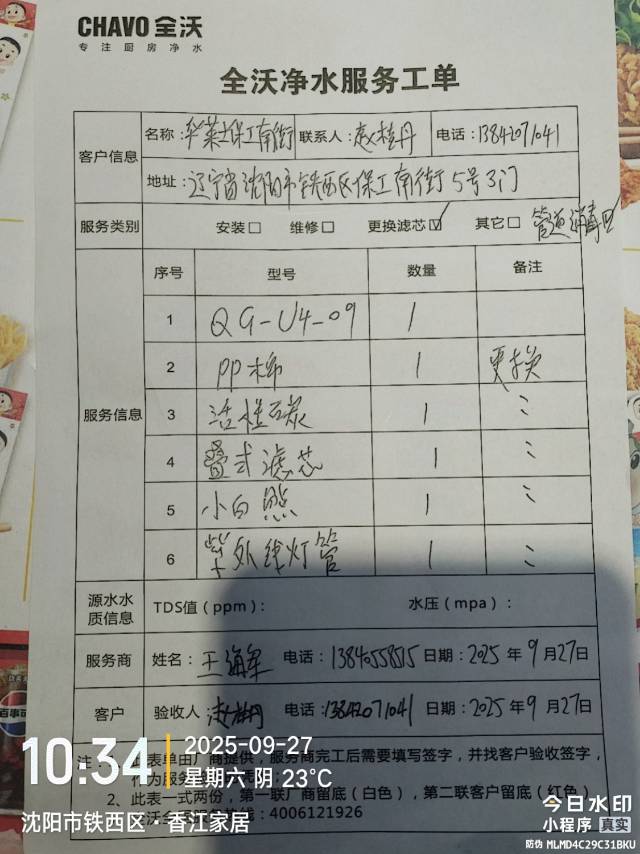 CHAVO 全沃
专注厨房净水
全沃净水服务工单
客户信息
名称：华莱士保工南街 联系人：赵桂丹 电话：13842071041
地址：辽宁省沈阳市铁西区保工南街5号3门
服务类别 安装□ 维修□ 更换滤芯☑ 其它□ 管道消毒☑
服务信息
序号 型号 数量 备注
1 QG-U4-09 1
2 PP棉 1 更换
3 活性碳 1 〃
4 叠式滤芯 1 〃
5 小白熊 1 〃
6 紫外线灯管 1 〃
源水水质信息 TDS值（ppm）： 水压（mpa）：
服务商 姓名：王海军 电话：13840558515 日期：2025年9月27日
客户 验收人：赵桂丹 电话：13842071041 日期：2025年9月27日
注：1、此表单由厂商提供，服务商完工后需要填写签字，并找客户验收签字，
作为服务
2、此表一式两份，第一联厂商留底（白色），第二联客户留底（红色）
全沃全国服务热线：4006121926
10:34
2025-09-27
星期六 阴 23℃
沈阳市铁西区·香江家居
今日水印
小程序 真实
防伪 MLMD4C29C31BKU
百事可